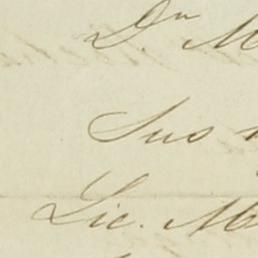 Dn M
Sus
Lic. Ma